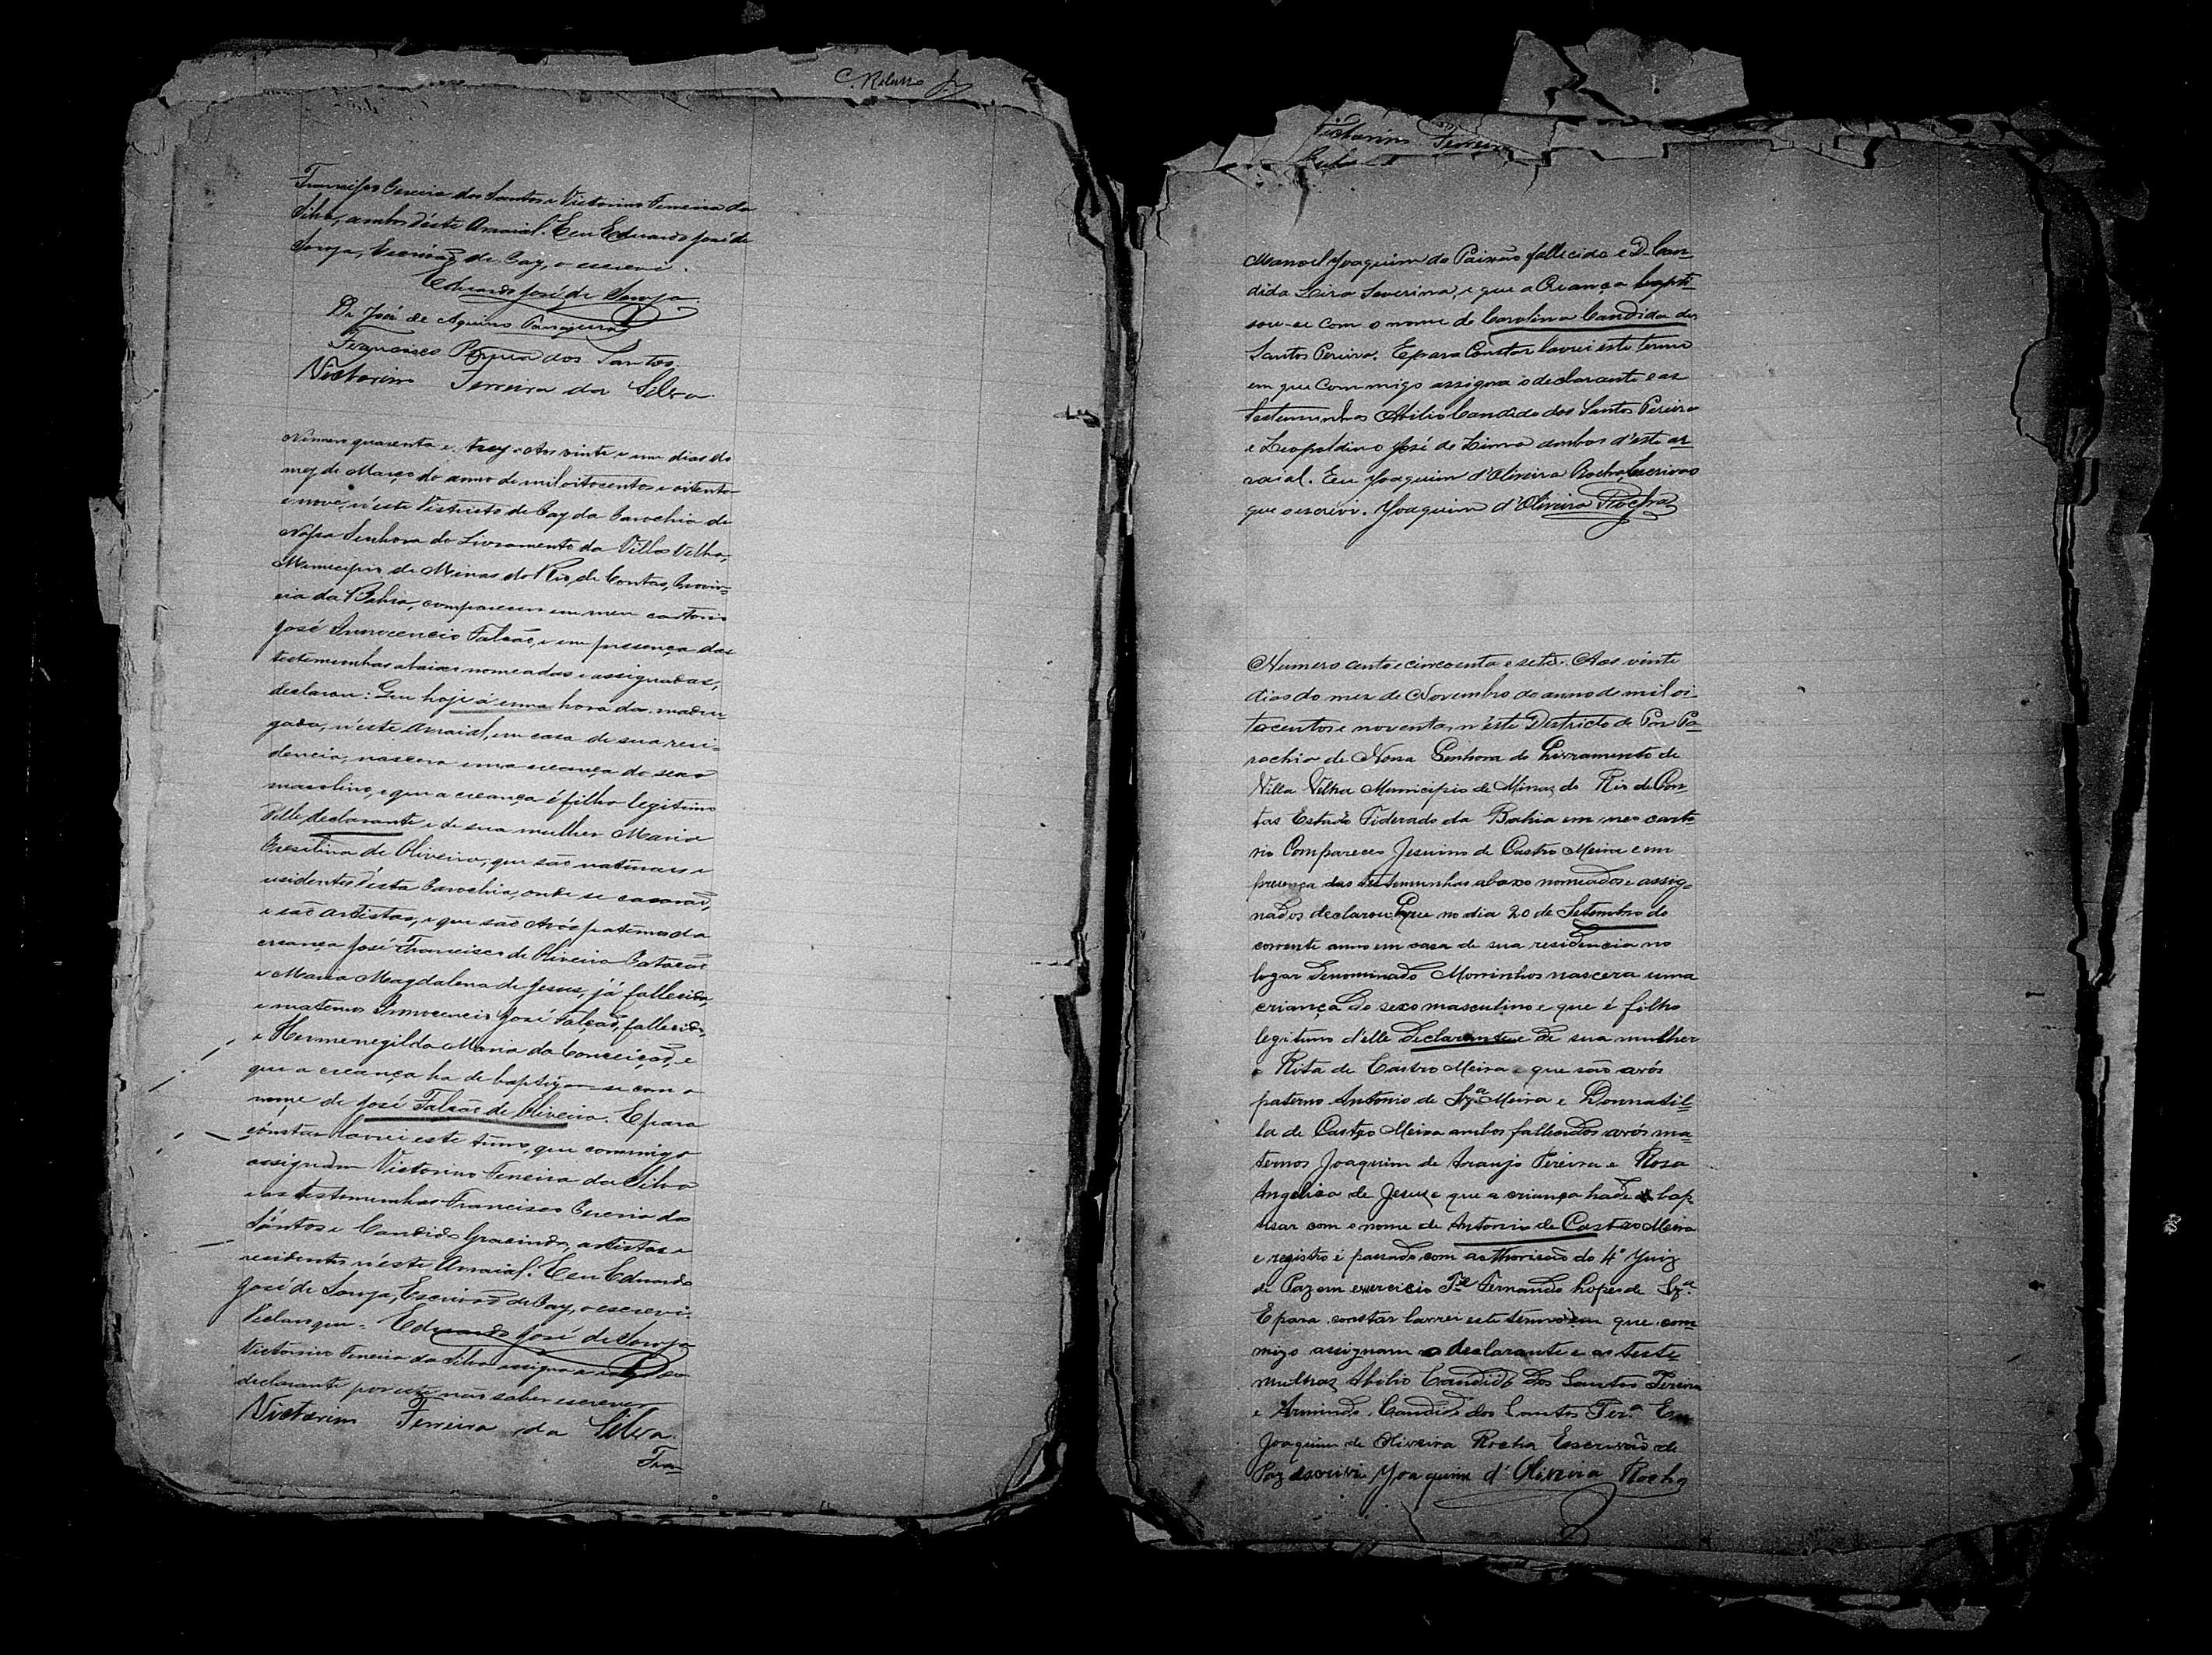 Francisco Pereira dos Santos e Victorino Ferreira da
Silva, ambos d'este Arraial. E eu Eduardo José de
Souza, Escrivão de Paz, o escrevi.
Eduardo José de Souza
Dr José de Aquino
Francisco Pereira dos Santos
Victorino Ferreira da Silva
Numero quarenta e trez. Aos vinte e um dias do
mez de Março do anno de mil oitocentos e oitenta
e nove, n'este Districto de Paz da Parochia de
Nossa Senhora do Livramento da Villa Velha,
Municipio de Minas do Rio de Contas, Provin-
cia da Bahia, compareceu em meu cartorio
José Innocencio Falcão, e em presença das
testemunhas abaixo nomeadas e assignadas,
declarou: Que hoje á uma hora da madru-
gada, n'este Arraial, em casa de sua resi-
dencia, nascera uma creança do sexo
masculino, e que a creança é filho legitimo
d'elle declarante e de sua mulher Maria
de Oliveira, que são naturaes e
residentes d'esta Parochia, onde se casarão,
e são artistas, e que são Avós paternos da
creança José Francisco de Oliveira
e Maria Magdalena de Jesus, já fallecida,
e maternos Innocencio José Falcão, fallecido,
e Hermenegilda Maria da Conceição, e
que a creança ha de baptizar-se com o
nome de José Falcão de Oliveira. E para
constar lavrei este termo, que commigo
assignam Victorino Ferreira da Silva
e as testemunhas Francisco Pereira dos
Santos e Candido Gracindo, artistas e
residentes n'este Arraial. E eu Eduardo
José de Souza, Escrivão de Paz, o escrevi.
Declaro que. Eduardo José de Souza
Victorino Ferreira da Silva assigna a rogo do
declarante por este não saber escrever
Victorino Ferreira da Silva
Fran-
Victorino Ferreira
Manoel Joaquim da Paixão fallecido e D. Can-
dida Severina, e que a Creança bapti-
sou-se com o nome de Carolina Candida dos
Santos Pereira. E para Constar lavrei este termo
em que Commigo assigna o declarante e as
testemunhas Abilio Candido dos Santos Pereira
e Leopoldino José de Lima ambos d'este ar-
raial. Eu Joaquim d'Oliveira Rocha Escrivão
que o escrevi. Joaquim d'Oliveira Rocha
Numero cento e cincoenta e sete. Aos vinte
dias do mez de Novembro do anno de mil oi-
tocentos e noventa, n'este Districto de Paz Pa-
rochia de Nossa Senhora do Livramento de
Villa Velha Municipio de Minas do Rio de Con
tas Estado Federado da Bahia em meo carto
rio Compareceo Jesuino de Castro Meira e em
presença das testemunhas abaxo nomeados e assig-
nados declarou Que no dia 20 de Setembro do
corrente anno em casa de sua residencia no
logar denominado Morrinhos nascera uma
criança do sexo masculino e que é filho
legitimo d'elle Declarante e de sua mulher
Rita de Castro Meira e que são avós
paterno Antonio de Sz.ª Meira e Donnatil-
la de Castro Meira ambos fallecidos avós ma-
ternos Joaquim de Araujo Pereira e Rosa
Angelica de Jesus e que a criança hade bap
tisar com o nome de Antonio de Castro Meira
e registro é passado com authorisão do 4º Juiz
de Paz em exercicio Fernando Lopes de Sz.ª
E para constar lavrei este termo em que com
migo assignam o declarante e as teste-
munhas Abilio Candido dos Santos Pereira
e Armindo Candido dos Santos Per.ª Eu
Joaquim de Oliveira Rocha Escrivão de
Paz escrivi Joaquim d'Oliveira Rocha